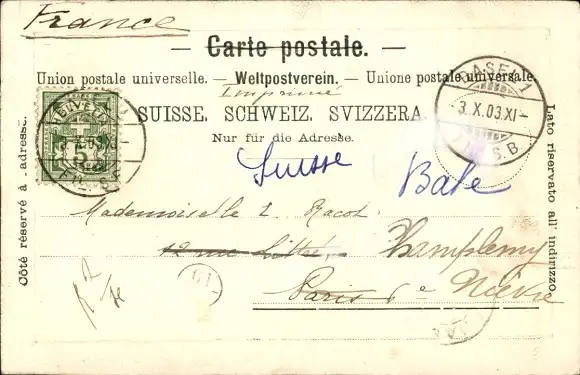 France
— Carte postale. —
Union postale universelle. — Weltpostverein. — Unione postale universale.
Imprimé
SUISSE. SCHWEIZ. SVIZZERA
Nur für die Adresse.
Suisse
Bale
Mademoiselle L. Racot
12 rue Littré,
Champlemy
Paris 6e Nièvre
Côté réservé à l'adresse.
Lato riservato all' indirizzo.
BASEL 1
3.X.03.XI
3.X.03.XI
5